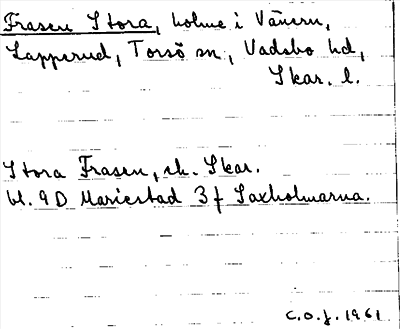 Frasen Stora, holme i Vänern,
Lapperud, Torsö sn, Vadsbo hd,
Skar. l.
Stora Frasen, ek. Skar.
bl. 9D Mariestad 3f Laxholmarna.
C.O.J. 1961